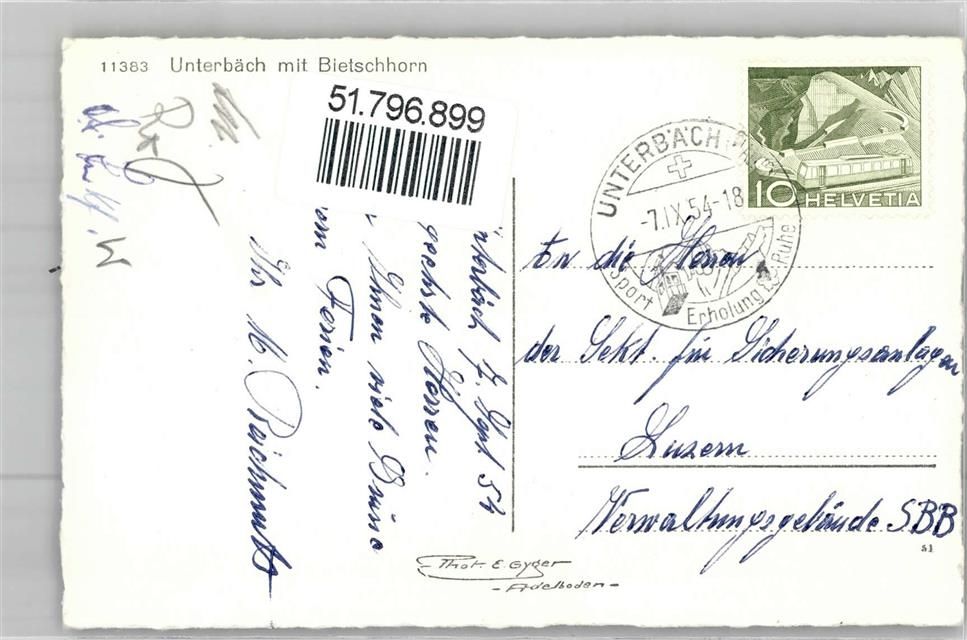 11383 Unterbäch mit Bietschhorn
51.796.899
UNTERBÄCH
-7.IX.54-18
Sport Erholung Ruhe
10 HELVETIA
An die Herren
der Sekt. für Sicherungsanlagen
Luzern
Verwaltungsgebäude SBB
51
nterbäch 7. Sept 54
geehrte Herren.
Ihnen viele Grüsse
om Ferien.
Ihr M.
Phot. E. Gyger
- Adelboden -